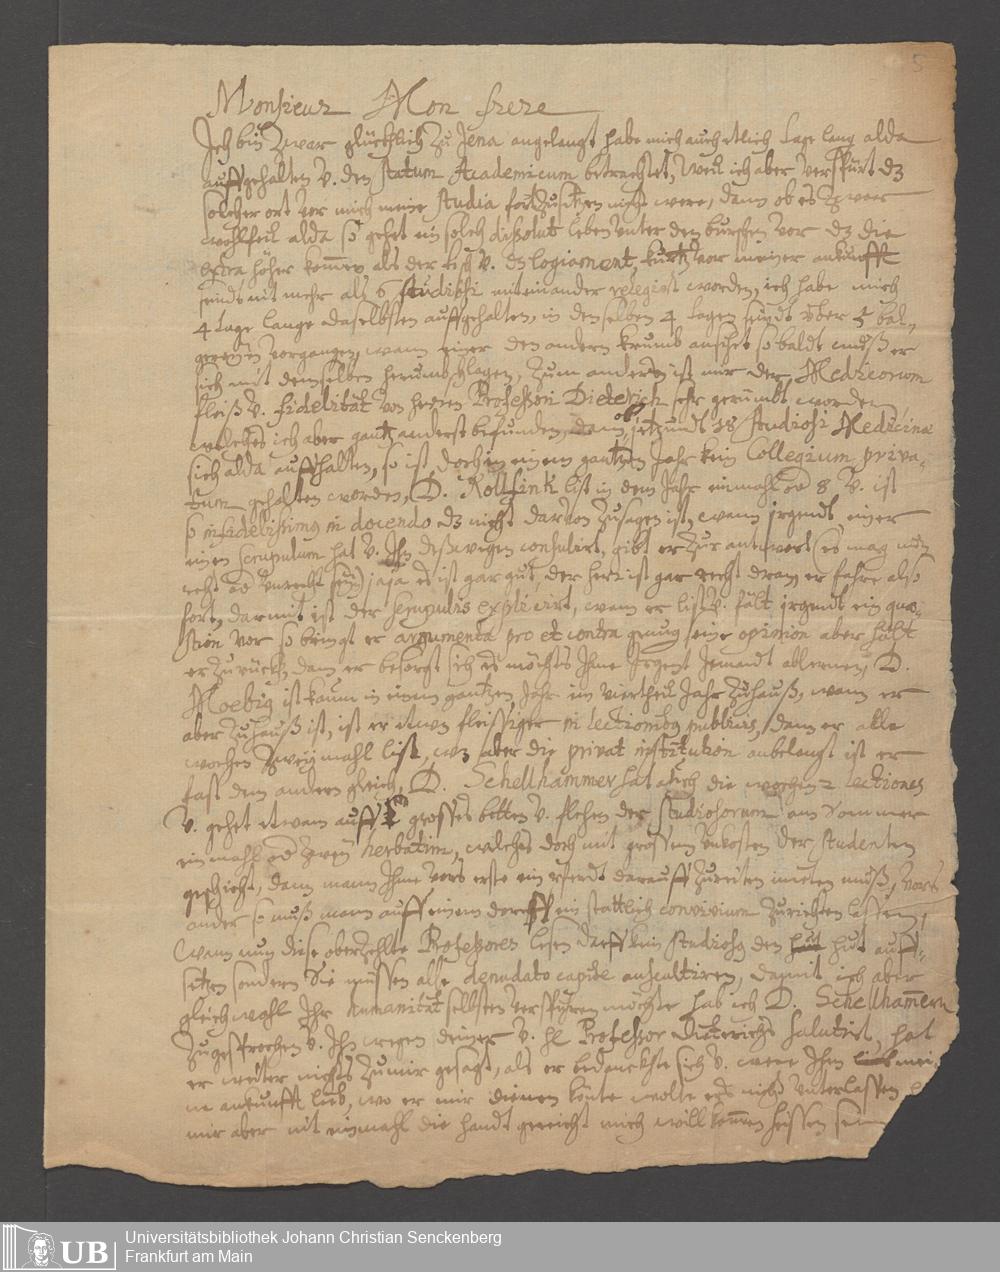 5
Monsieur Mon frere
Ich bin zwar glücklich zu Jena angelangt habe mich auch etlich tage lang alda
auffgehalten v. den statum Academicum betrachtet, weil ich aber verspürt dz
solcher ort vor mich meine studia fortzusetzen nicht were, dann ob es zwar
wohlfeil alda so gehet ein solch dissolut leben unter den burschen vor dz die
extra höher kommen als der tisch v. dz logiament, kurtz vor meiner ankunfft
seindt nit mehr als 6 studiosi miteinander relegirt worden, ich habe mich
4 tage lange daselbsten auffgehalten, in denselben 4 tagen seindt über 5 bal-
gereyen vorgangen, wann einer den andern krumb ansihet so baldt muß er
sich mit demselben herumbschlagen, Zum andern ist mir der Medicorum
fleiß v. fidelität von herrn Professori Dieterich sehr gerümbt worden
welches ich aber gantz anderst befunden, dann ob jetzundt 18 studiosi Medicinae
sich alda auffhalten, so ist doch in einem gantzen Jahr kein Collegium priva-
tum gehalten worden, D. Rolfink list in dem Jahr einmahl od 8 v. ist
so infidelissimus in docendo dz nicht darvon zusagen ist, wann irgendt einer
einen scrupulum hat v. Ihn deßwegen consulirt, gibt er zur antwort (es mag nun
recht od unrecht sein) jaja es ist gar gut, der herr ist gar recht dran er fahre also
fort, darmit ist der scrupulus explicirt, wann er list v. fält irgendt ein quae-
stion vor so bringt er argumenta pro et contra genug, seine opinion aber hält
er zurück, dann er besorgt sich es möchts Ihme irgent jemandt ablernen, D.
Moebig ist kaum in einem gantzen Jahr ein viertheil Jahr zuhauß, wann er
aber zuhauß ist, ist er etwas fleissiger in lectionibus publicis, dann er alle
wochen zweymahl list, wz aber die privat institution anbelangt ist er
fast dem andern gleich, D. Schellhammer hat auch die wochen 2 lectiones
v. gehet etwan auff grosses bitten v. flehen der studiosorum am Sommer
ein mahl od zwey herbatim, welches doch mit grossen unkosten der studenten
geschicht, dann mann Ihme vors erste ein pferdt darauff zureiten mieten muß, vors
ander so muß mann auff einem dorff ein stattlich convivium zurichten lassen,
Wann nun diese oberzehlte Professores lesen darff kein studiosus den hut auff-
setzen sondern sie müssen alle denudato capite auscultiren, damit ich aber
gleichwohl Ihr humanität selbsten verspüren möchte hab ich D. Schelhamern
zugesprochen v. Ihn wegen deiner v. H Professor Dieterichs salutirt, hat
er weiter nichts zu mir gesagt, als er bedanckte sich v. were Ihm mei-
ne ankunfft lieb, wo er mir dienen könte wolte ers nicht unterlassen
mir aber nit einmahl die handt gereicht mich willkommen heissen
Universitätsbibliothek Johann Christian Senckenberg
UB Frankfurt am Main